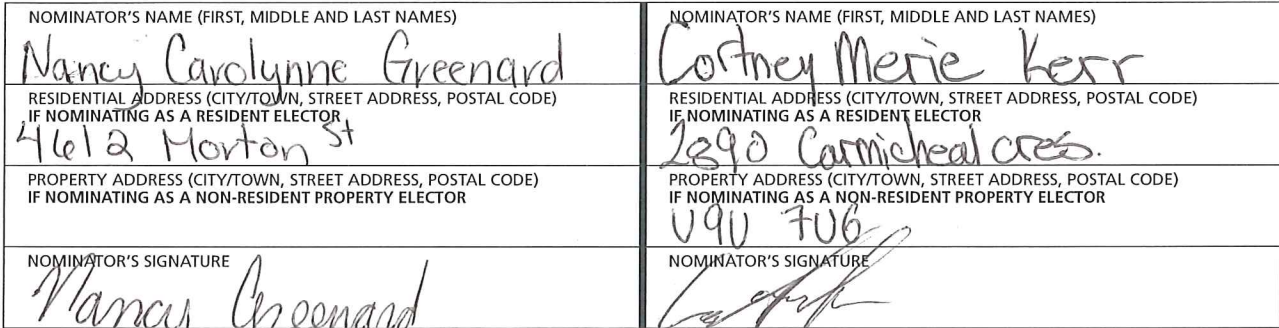 NOMINATOR'S NAME (FIRST, MIDDLE AND LAST NAMES)
Nancy Carolynne Greenard
RESIDENTIAL ADDRESS (CITY/TOWN, STREET ADDRESS, POSTAL CODE)
IF NOMINATING AS A RESIDENT ELECTOR
4612 Morton St
PROPERTY ADDRESS (CITY/TOWN, STREET ADDRESS, POSTAL CODE)
IF NOMINATING AS A NON-RESIDENT PROPERTY ELECTOR
NOMINATOR'S SIGNATURE
Nancy Greenard
NOMINATOR'S NAME (FIRST, MIDDLE AND LAST NAMES)
Cortney Merie Kerr
RESIDENTIAL ADDRESS (CITY/TOWN, STREET ADDRESS, POSTAL CODE)
IF NOMINATING AS A RESIDENT ELECTOR
2890 Carmicheal cres.
PROPERTY ADDRESS (CITY/TOWN, STREET ADDRESS, POSTAL CODE)
IF NOMINATING AS A NON-RESIDENT PROPERTY ELECTOR
V9V 7V6
NOMINATOR'S SIGNATURE